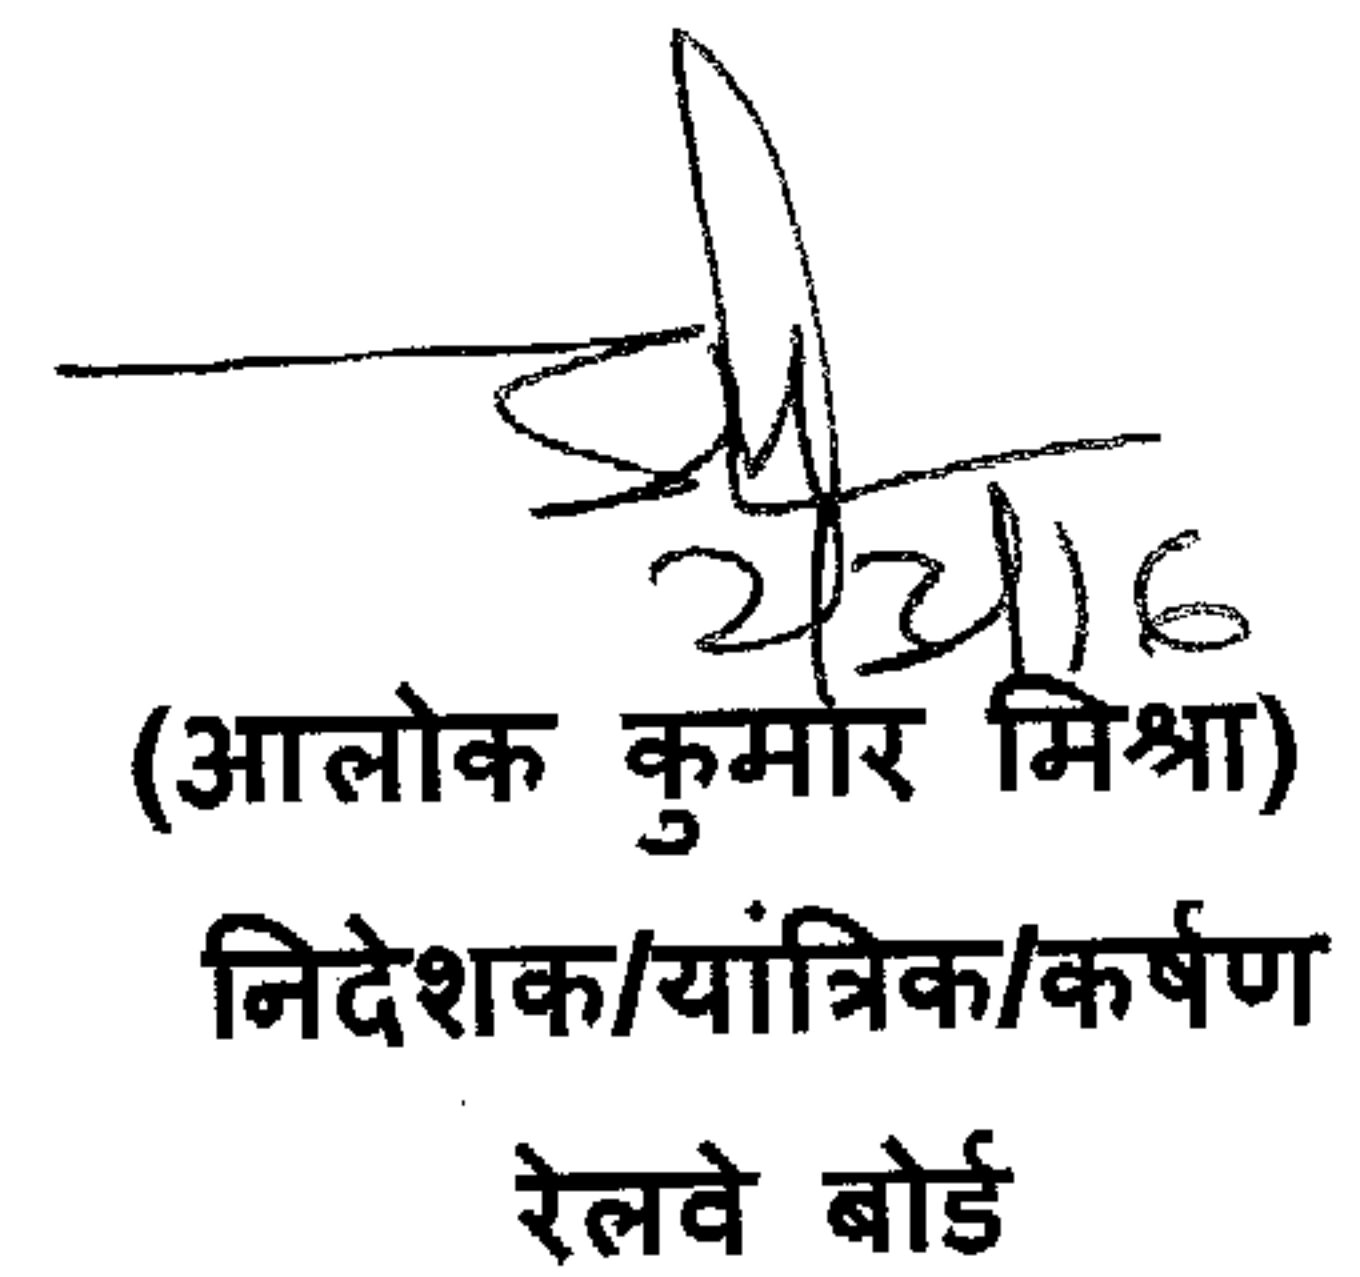 (आलोक कुमार मिश्रा)
निदेशक/यांत्रिक/कर्षण
रेलवे बोर्ड